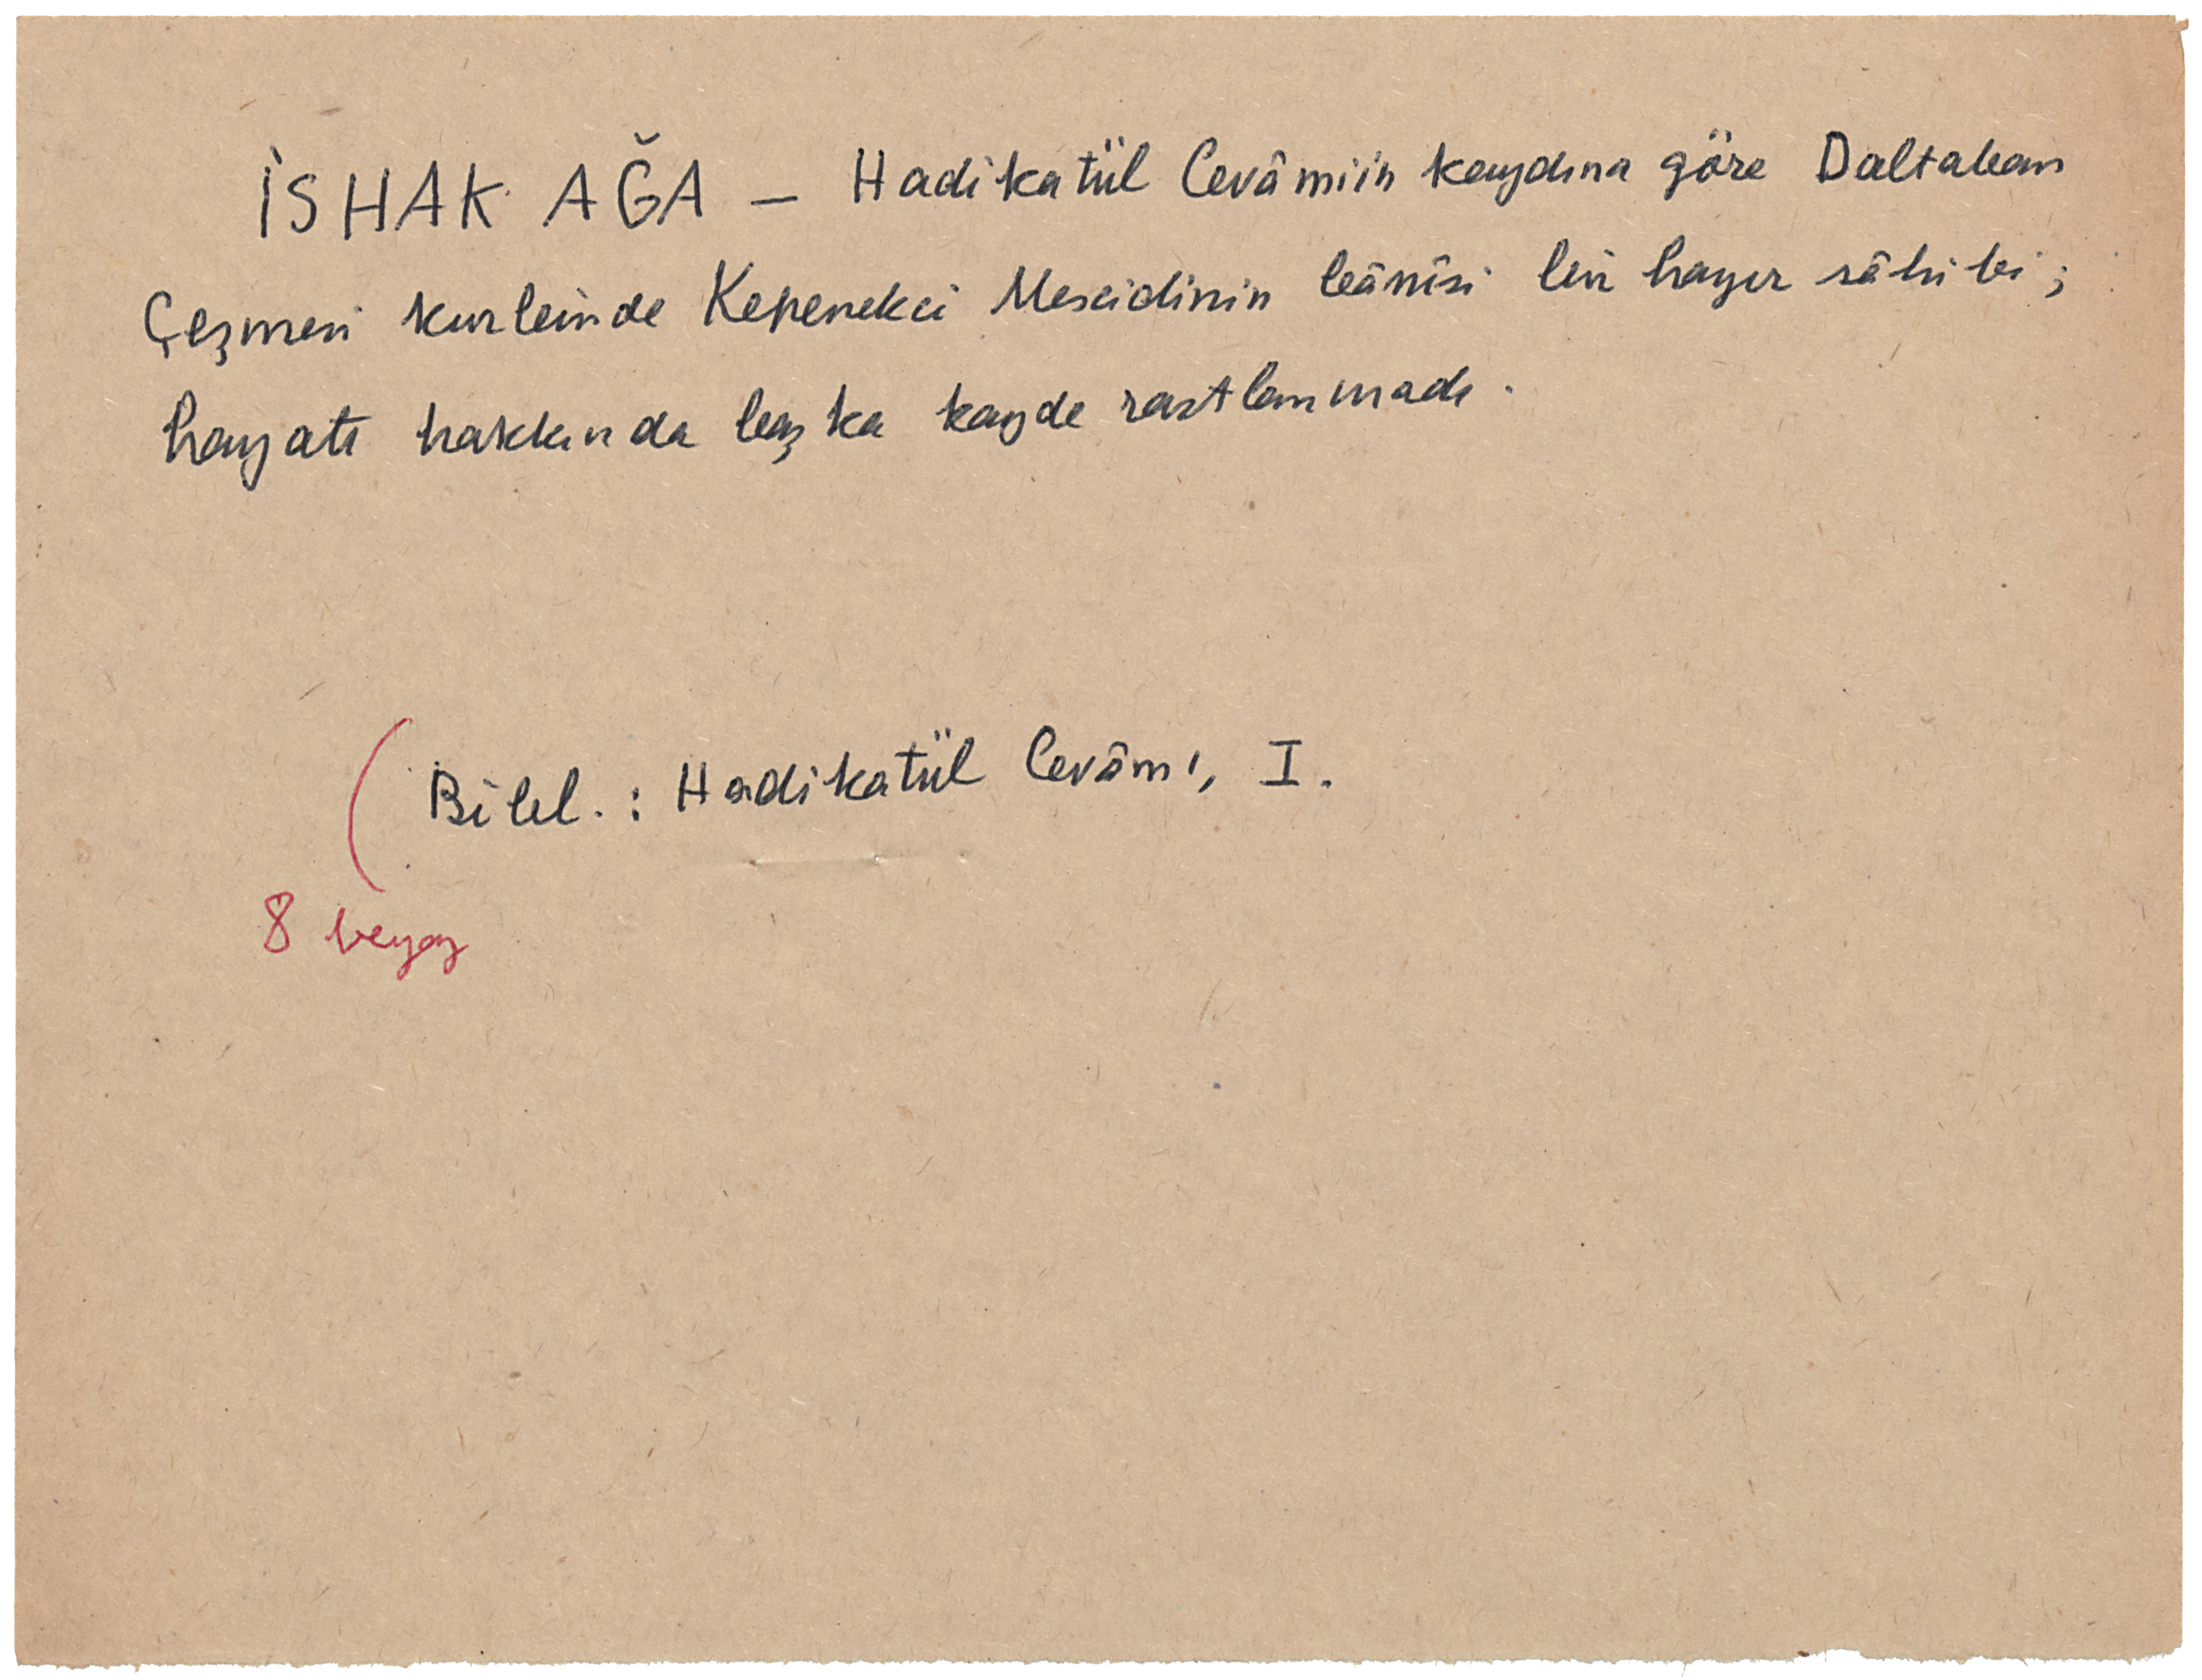 İSHAK AĞA — Hadikatül Cevâmiin kaydına göre Daltaban
Çeşmesi kurbinde Kepenekci Mescidinin bânîsi bir hayır sâhibi;
hayatı hakkında başka kayde rastlanmadı.
(Bibl. : Hadikatül Cevâmi, I.
8 beyaz